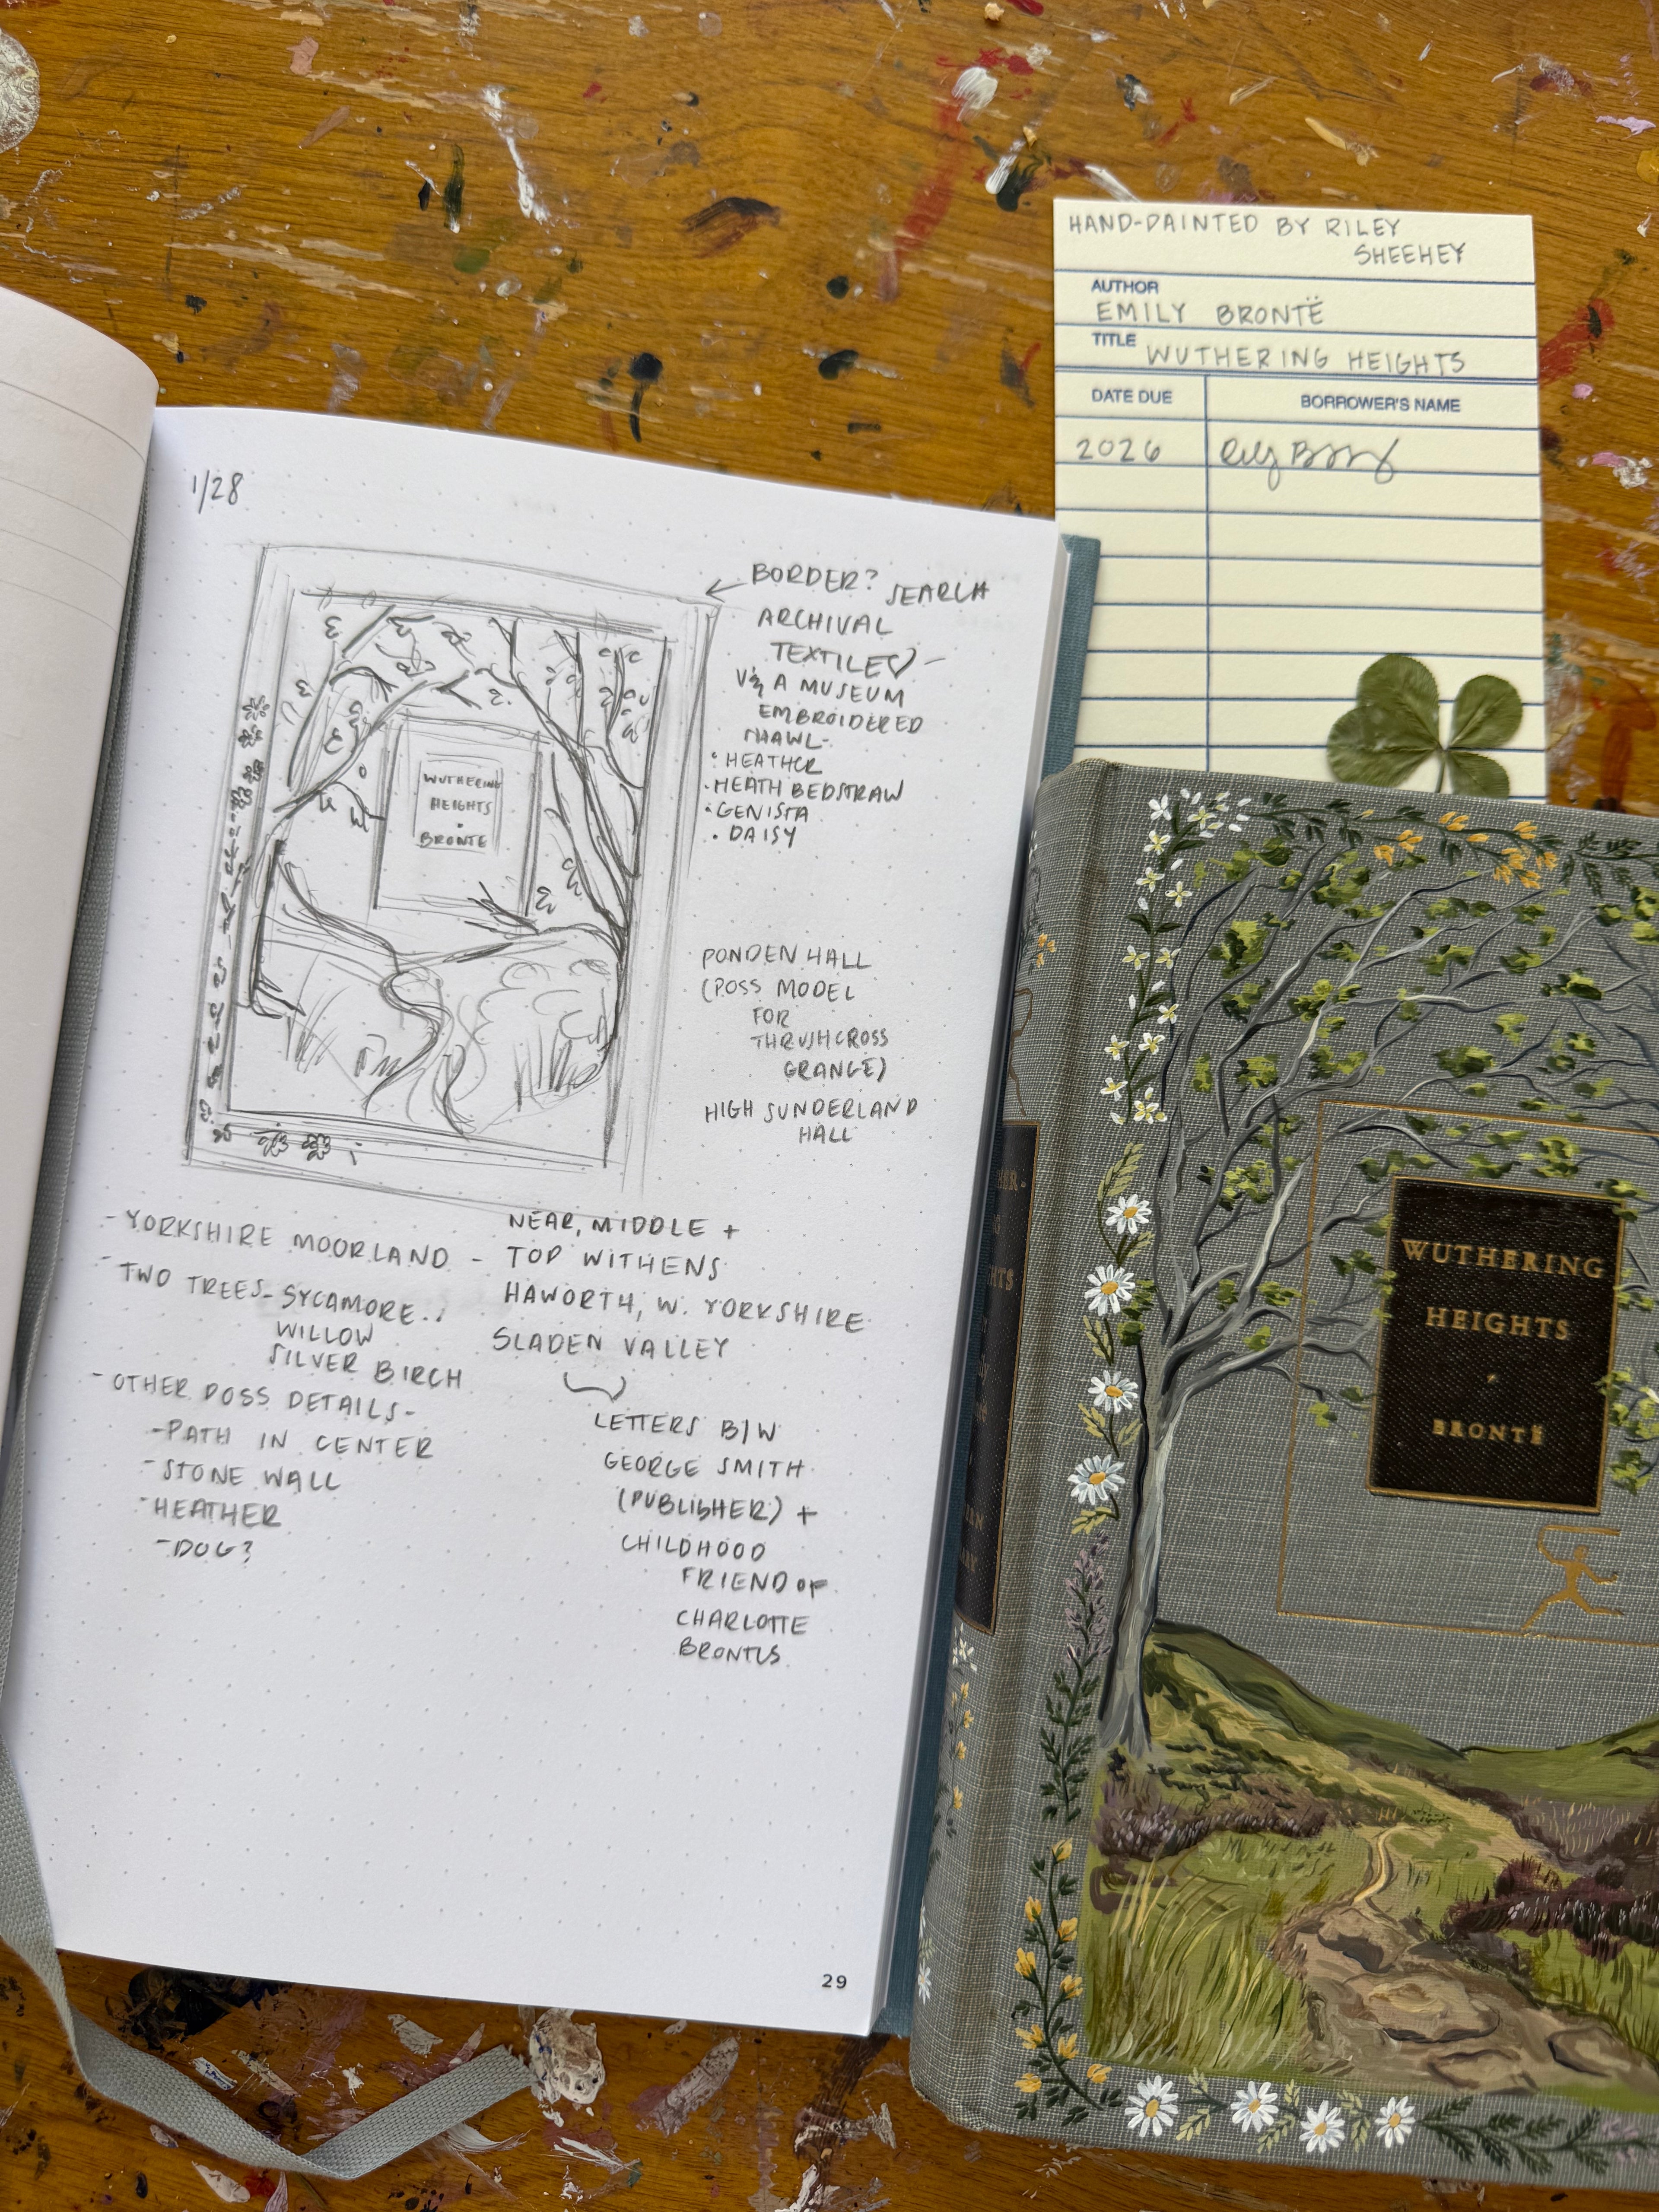 1/28
BORDER? SEARCH
ARCHIVAL
TEXTILE
V & A MUSEUM
EMBROIDERED
SHAWL-
• HEATHER
• HEATH BEDSTRAW
• GENISTA
• DAISY
WUTHERING
HEIGHTS
•
BRONTE
PONDEN HALL
(POSS MODEL
FOR
THRUSHCROSS
GRANGE)
HIGH SUNDERLAND
HALL
- YORKSHIRE MOORLAND -
- TWO TREES- SYCAMORE..
WILLOW
SILVER BIRCH
- OTHER POSS DETAILS-
- PATH IN CENTER
- STONE WALL
- HEATHER
- DOG?
NEAR, MIDDLE +
TOP WITHENS
HAWORTH, W. YORKSHIRE
SLADEN VALLEY
LETTERS B/W
GEORGE SMITH
(PUBLISHER) +
CHILDHOOD
FRIEND OF
CHARLOTTE
29
HAND-PAINTED BY RILEY
SHEEHEY
AUTHOR
EMILY BRONTË
TITLE WUTHERING HEIGHTS
DATE DUE BORROWER'S NAME
2026
WUTHERING
HEIGHTS
BRONTË